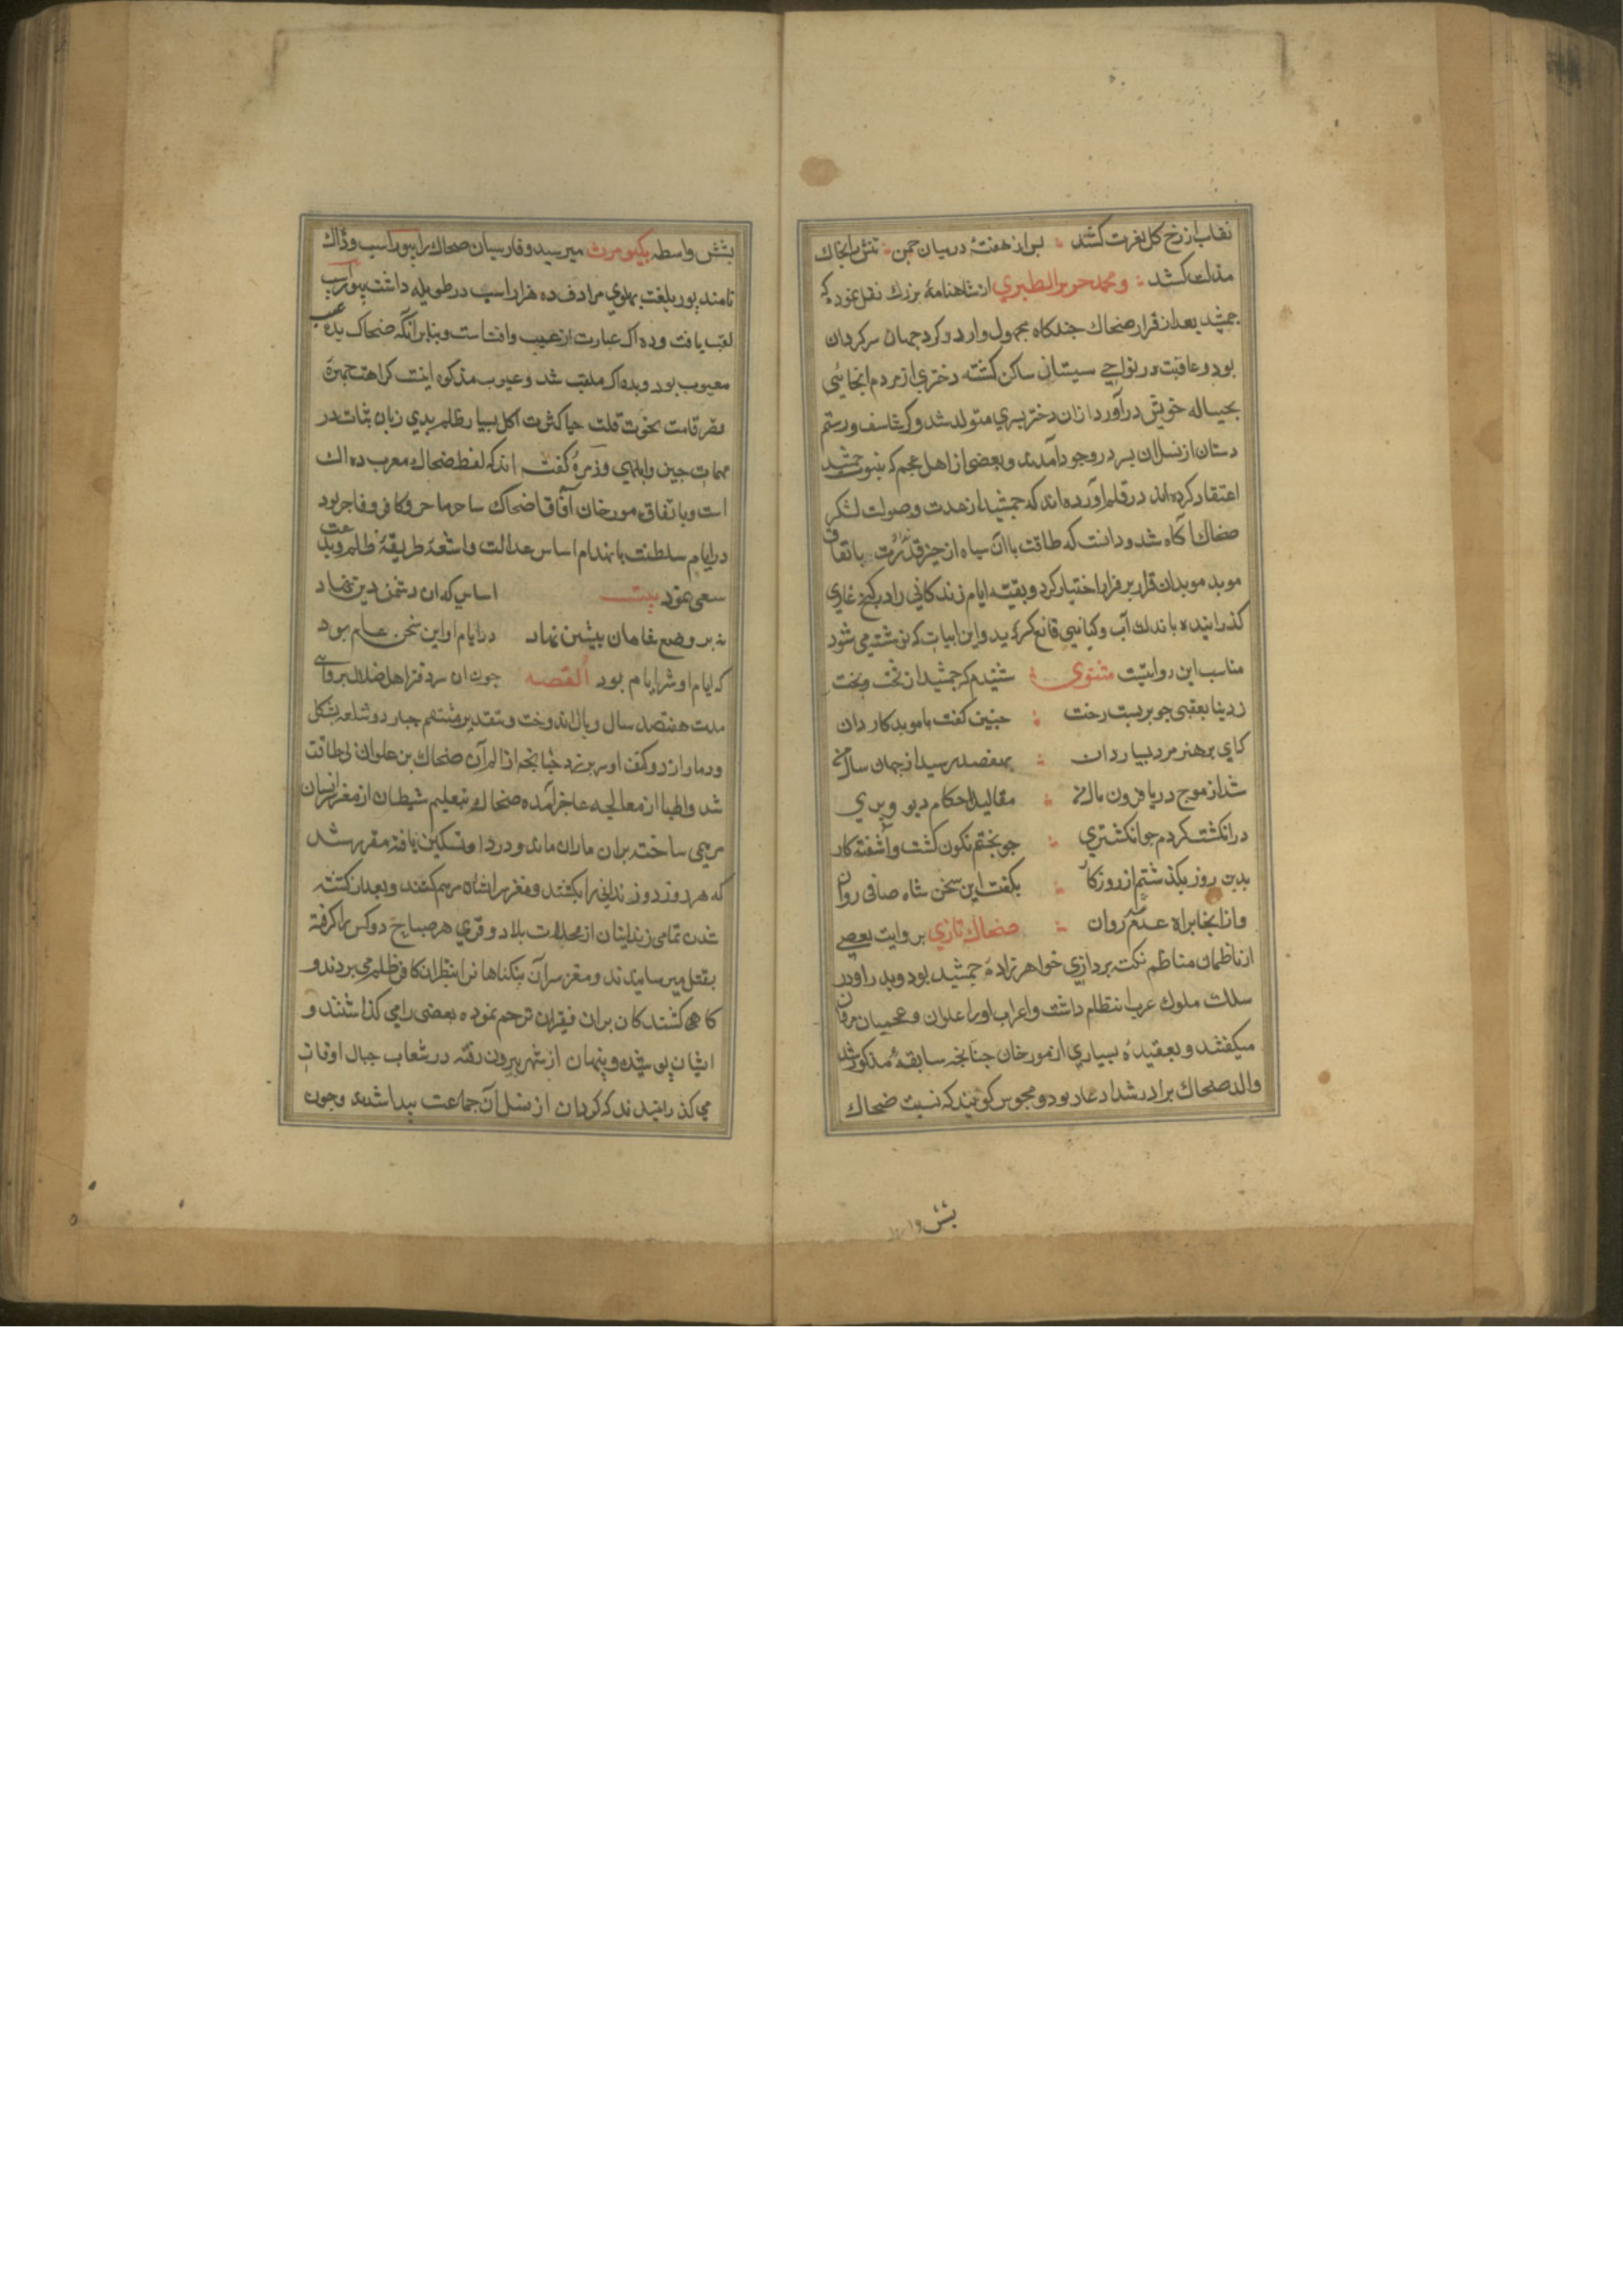 نقاب از رخ کل بغرت کشد پس از هفتهٔ درمیان چمن تنش را بخاک
مذلت کشد ومحمد جریر الطبری از شاهنامهٔ بزرک نقل نموده که
جمشید بعد از قرار ضحاک چندکاه مجهول وار در کرد جهان سرکردان
بود وعاقبت در نواحی سیستان ساکن کشته دختری از مردم انجائی
بحباله خویش درآورد ازان دختر پسری متولد شد وکرشاسف ورستم
دستان از نسل ان پسر در وجود آمدند وبعضی از اهل عجم که بنبوت جمشید
اعتقاد کرده اند در قلم آورده اند که جمشید از عدت وصولت لشکر
ضحاک آکاه شد ودانست که طاقت با آن سپاه از حیز قدرت باتفاق
موبد موبدان قرار بر فرار اختیار کرد وبقیه ایام زندکانی را در کنج غاری
کذرانیده باندک آب وکیاهی قانع کردید واین ابیات که نوشته می شود
مناسب این روایتست مثنوی شنیدم که جمشید از تخت وبخت
ز دنیا بعقبی چو بربست رخت چنین کفت با موبد کاردان
که ای پرهنر مرد بسیاردان بهفصد رسید از جهان سال من
شد از موج دریا فزون مال من مقالید احکام دیو وپری
در انکشت کردم چو انکشتری چو بختم نکون کشت وآشفته کار
بدین روز بکذشتم از روزکار بکفت این سخن شاه صافی روان
وازانجا براه عدم شد روان ضحاک تازی بروایت بعضی
از ناظمان مناظم نکته پردازی خواهرزادهٔ جمشید بود وپدر او در
سلک ملوک عرب انتظام داشت واعراب اورا علوان وعجمیان مرداس
میکفتند وبعقیدهٔ بسیاری از مورخان چنانچه سابقهٔ مذکور شد
والد ضحاک برادر شداد عاد بود ومجوس کویند که نسبت ضحاک
بشش واسطه
بشش واسطه بکیومرث میرسید وفارسیان ضحاک را بیوراسب وده اک
نامند بیور بلغت پهلوی مرادف ده هزار اسب در طویله داشت بیوراسب
لقب یافت وده اک عبارت از عیب وافتاست وبنابر آنکه ضحاک بده عیب
معیوب بود وبده اک ملقب شد وعیوب مذکوره اینست کراهت چهره
قصر قامت نخوت قلت حیا کثرت اکل بسیار ظلم بدی زبان ثبات در
مهمات جبن وابلهی وزمرهٔ کفته اند که لفظ ضحاک معرب ده اک
است وباتفاق مورخان آفاق ضحاک ساحر ماهر وکافر وفاجر بود
در ایام سلطنت بانهدام اساس عدالت واشعهٔ طریقهٔ ظلم وبدعت
سعی نمود بیت اساسی که ان دشمن دین نهاد
نه بر وضع شاهان پیشین نهاد در ایام او این سخن عام بود
که ایام او شر ایام بود القصه چون ان سردفتر اهل ضلال بروایتی
مدت هفتصد سال وبال اندوخت وبتقدیر منتقم جبار دو شلعه بشکل
دو مار از دو کتف او سر بر زد چنانچه از الم آن ضحاک بن علوان بی طاقت
شد واطبا از معالجه عاجز آمده ضحاک بتعلیم شیطان از مغز انسان
مرهمی ساخته بران ماران ماند ودرد او تسکین یافته مقرر شد
که هر روز دو زندانی را بکشند ومغز سر ایشان مرهم کنند وبعد از کشته
شدن تمامی زندانیان از محلات بلاد وقری هر صباح دو کس را کرفته
بقتل میرسانیدند ومغز سر آن بیکناهان را بنظر ان کافر ظالم می بردند و
کاهی کشندکان بران فقیران ترحم نموده بعضی را می کذاشتند و
ایشان پوشیده وپنهان از شهر بیرون رفته در شعاب جبال اوقات
می کذرانیدند که کردان از نسل آن جماعت پیدا شدند وچون